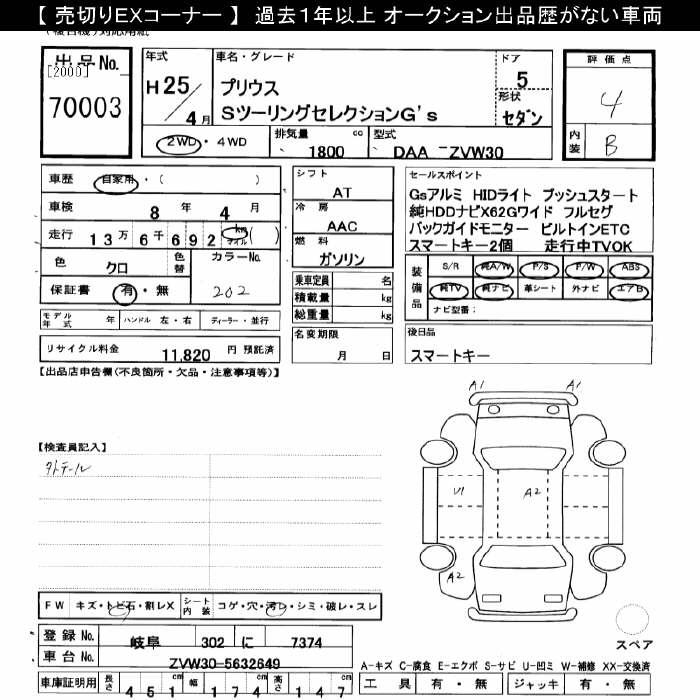 【 売切りEXコーナー 】 過去1年以上 オークション出品歴がない車両
出品No.
[2000]
70003
年式
H25/4月
車名・グレード
プリウス
SツーリングセレクションG's
ドア
5
形状
セダン
評価点
4
内装
B
2WD・4WD
排気量
1800 cc
型式
DAA-ZVW30
車歴 自家用・( )
車検 8年 4月
走行 13万6千692 km マイル ( )
色 クロ
色替
カラーNo.
202
保証書 有・無
シフト
AT
冷房
AAC
燃料
ガソリン
セールスポイント
Gsアルミ HIDライト プッシュスタート
純HDDナビX62Gワイド フルセグ
バックガイドモニター ビルトインETC
スマートキー2個 走行中TVOK
装備品
S/R 純A/W P/S P/W ABS
純TV 純ナビ 革シート 外ナビ エアB
ナビ型番:
乗車定員 名
積載量 kg
総重量 kg
モデル年式 年 ハンドル 左・右 ディーラー・並行
リサイクル料金 11,820 円 預託済
名変期限
月 日
後日品
スマートキー
【出品店申告欄(不良箇所・欠品・注意事項等)】
A1 A1
【検査員記入】
タトテール
U1 A2
A2
FW キズ・トビ石・割レX
シート内装 コゲ・穴・汚レ・シミ・破レ・スレ
登録No. 岐阜 302 に 7374
車台No. ZVW30-5632649
スペア
A-キズ C-腐食 E-エクボ S-サビ U-凹ミ W-補修 XX-交換済
車庫証明用 長さ 451cm 幅 174cm 高さ 147cm
工具 有・無 ジャッキ 有・無